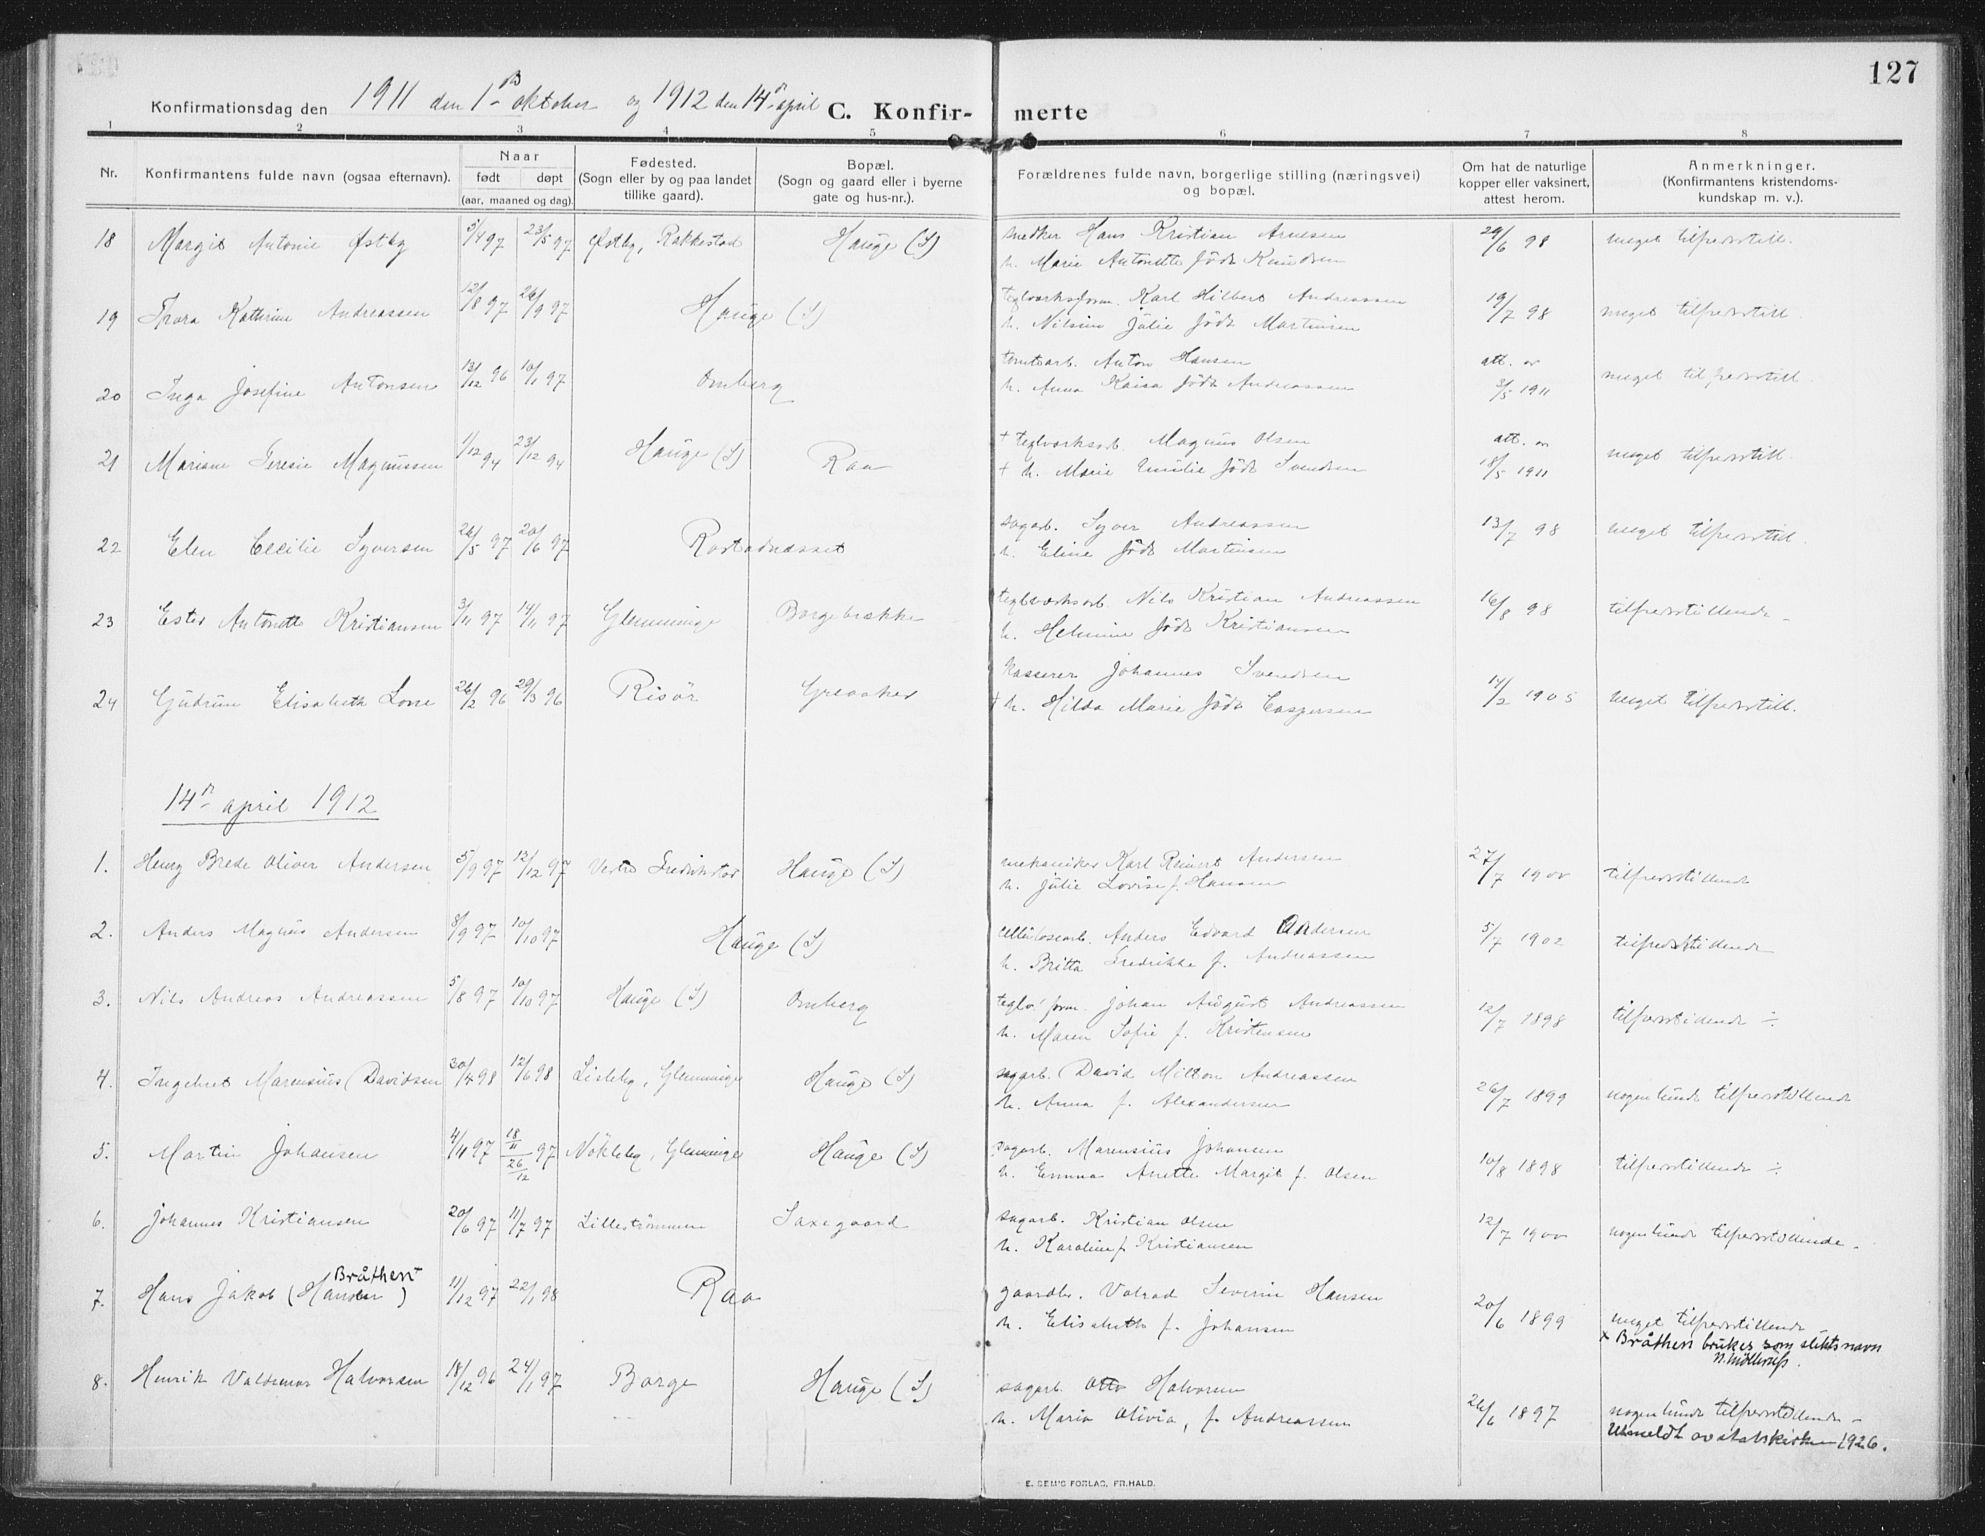 127
Konfirmationsdag den 1911 den 1ste oktober og 1912 den 14de april C. Konfirmerte
1 2 3 4 5 6 7 8
Nr. Konfirmantens fulde navn (ogsaa efternavn). Naar født døpt (aar, maaned og dag). Fødested. (Sogn eller by og paa landet tillike gaard). Bopæl. (Sogn og gaard eller i byerne gate og hus-nr.). Forældrenes fulde navn, borgerlige stilling (næringsvei) og bopæl. Om hat de naturlige kopper eller vaksinert, attest herom. Anmerkninger. (Konfirmantens kristendomskundskap m. v.).
18 Margit Antonie Østby 5/4 97 23/5 97 Østby, Rakkestad Hauge (S) smedker Hans Kristian Arnesen 29/6 98 meget tilfredsstill.
h. Marie Antonette født Knudsen
19 Thora Kathrine Andreassen 12/8 97 26/9 97 Hauge (S) teglverksform. Karl Hilbert Andreassen 19/7 98 meget tilfredsstill.
h. Nilsine Julie født Martinsen
20 Inga Josefine Antonsen 13/12 96 10/1 97 Omberg tomtearb. Anton Hansen att. av meget tilfredsstill.
h. Anna Kaisa født Andreassen 3/5 1911
21 Mariane Teresie Magnussen 1/12 94 23/12 94 Hauge (S) Raa † teglverksarb. Magnus Olsen att. av meget tilfredsstill.
† h. Marie Emilie født Svendsen 18/5 1911
22 Elen Cecilie Syversen 26/5 97 20/6 97 Rostadnæsset sagarb. Syver Andreassen 13/7 98 meget tilfredsstill.
h. Eline født Martinsen
23 Ester Antonette Kristiansen 3/11 97 14/11 97 Glemminge Borgebrække teglværksarb. Nils Kristian Andreassen 16/8 98 tilfredsstillende
h. Helmine født Kristiansen
24 Gudrun Elisabeth Lone 26/2 96 29/3 96 Risör Greaaker kasserer Johannes Svendsen 14/2 1905 meget tilfredsstill.
† h. Hilda Marie født Caspersen
14de april 1912
1. Henry Brede Oliver Andersen 5/9 97 12/12 97 Vestre Fredrikstad Hauge (S) mekaniker Karl Reinert Andersen 27/7 1900 tilfredsstillende
h. Julie Lovise f. Hansen
2. Anders Magnus Andersen 8/9 97 10/10 97 Hauge (S) cellulosearb. Anders Edvard Andersen 5/7 1902 tilfredsstillende
h. Britta Fredrikke f. Andreassen
3. Nils Andreas Andreassen 5/8 97 10/10 97 Hauge (S) Omberg teglv. form. Johan August Andreassen 12/7 1898 tilfredsstillende ÷
h. Maren Sofie f. Kristensen
4. Ingebret Marensius (Davidsen 30/4 98 12/6 98 Lisleby, Glemminge Hauge (S) sagarb. David Milton Andreassen 26/7 1899 nogenlunde tilfredsstillende
h. Anna f. Alexandersen
5. Martin Johansen 4/11 97 18/11 26/12 97 Nökleby, Glemminge Hauge (S) sagarb. Marensius Johansen 10/8 1898 tilfredsstillende ÷
h. Emma Anette Margit f. Olsen
6. Johannes Kristiansen 20/6 97 11/7 97 Lilleströmmen Saxegaard sagarb. Kristian Olsen 12/7 1900 nogenlunde tilfredsstillende.
h. Karoline f. Kristiansen
Bråthen +
7. Hans Jakob (Hansen) 11/12 97 22/1 98 Raa gaardbr. Valrad Severin Hansen 20/6 1899 meget tilfredsstillende
h. Elisabeth f. Johansen
× Bråthen brukes som slektsnavn
N. Möllerup.
8. Henrik Valdemar Halvorsen 18/12 96 24/1 97 Borge Hauge (S) sagarb. Otto Halvorsen 26/6 1897 nogenlunde tilfredsstillende –
h. Maria Olivia, f. Andreassen Utmeldt av statskirken 1926.
E. SEM'S FORLAG, FR.HALD.